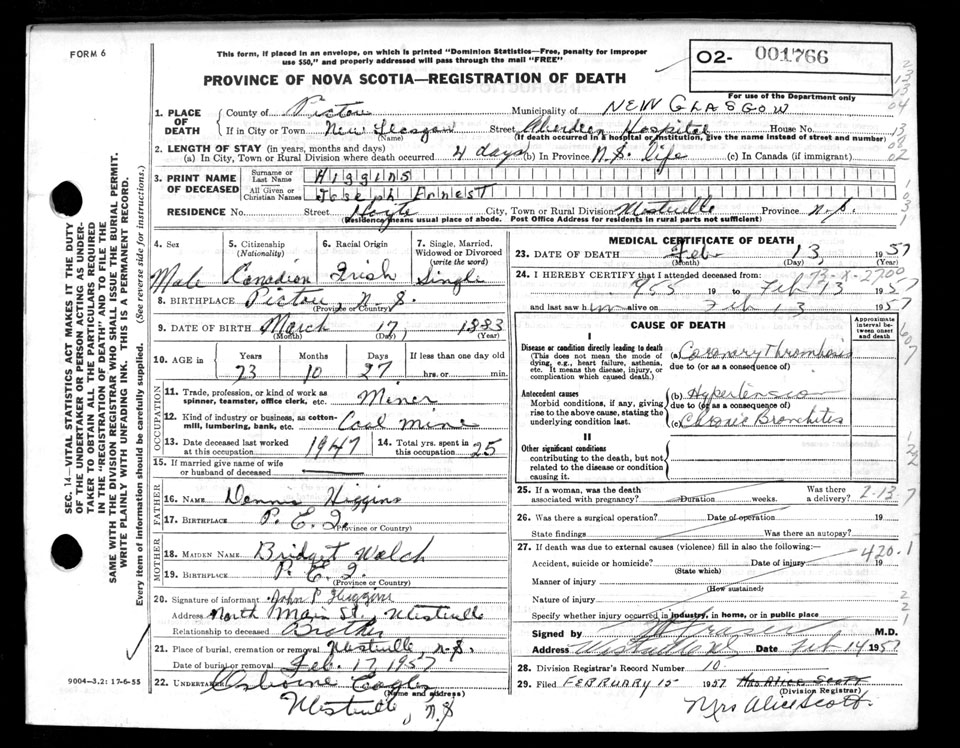 FORM 6
This form, if placed in an envelope, on which is printed "Dominion Statistics—Free, penalty for improper
use $50," and properly addressed will pass through the mail "FREE"
02- 001766
For use of the Department only
PROVINCE OF NOVA SCOTIA—REGISTRATION OF DEATH
1. PLACE OF DEATH
County of Pictou Municipality of NEW GLASGOW
If in City or Town New Glasgow Street Aberdeen Hospital House No.
(Name) (If death occurred in a hospital or institution, give the name instead of street and number)
2. LENGTH OF STAY (in years, months and days)
(a) In City, Town or Rural Division where death occurred 4 days (b) In Province N.S. life (c) In Canada (if immigrant)
3. PRINT NAME OF DECEASED
Surname or Last Name Higgins
All Given or Christian Names Joseph Ernest
RESIDENCE No. Street Hoyte City, Town or Rural Division Westville Province N.S.
(Residency means usual place of abode. Post Office Address for residents in rural parts not sufficient)
4. Sex Male
5. Citizenship (Nationality) Canadian
6. Racial Origin Irish
7. Single, Married, Widowed or Divorced (write the word) Single
8. BIRTHPLACE Pictou, N.S.
(Province or Country)
9. DATE OF BIRTH March 17, 1883
(Month) (Day) (Year)
10. AGE in Years Months Days If less than one day old
73 10 27 hrs. or min.
OCCUPATION
11. Trade, profession, or kind of work as spinner, teamster, office clerk, etc. Miner
12. Kind of industry or business, as cotton-mill, lumbering, bank, etc. Coal mine
13. Date deceased last worked at this occupation 1947
14. Total yrs. spent in this occupation 25
15. If married give name of wife or husband of deceased
FATHER
16. NAME Dennis Higgins
17. BIRTHPLACE P. E. I.
(Province or Country)
MOTHER
18. MAIDEN NAME Bridget Walch
19. BIRTHPLACE P. E. I.
(Province or Country)
20. Signature of informant John P Higgins
Address North Main St, Westville
Relationship to deceased Brother
21. Place of burial, cremation or removal Westville, N.S.
Date of burial or removal Feb. 17 1957
22. UNDERTAKER Osborne Eagles
(Name and address)
Westville, N.S
9004-3.2: 17-6-55
MEDICAL CERTIFICATE OF DEATH
23. DATE OF DEATH Feb 13, 1957
(Month) (Day)
24. I HEREBY CERTIFY that I attended deceased from
1955 19 to Feb 13 1957
and last saw him alive on Feb 13 1957
CAUSE OF DEATH
Approximate interval between onset and death
I
Disease or condition directly leading to death
(This does not mean the mode of dying, e.g., heart failure, asthenia, etc. It means the disease, injury, or complication which caused death.
(a) Coronary Thrombosis
due to (or as a consequence of)
Antecedent causes
Morbid conditions, if any, giving rise to the above cause, stating the underlying condition last.
(b) Hypertension
due to (or as a consequence of)
(c) Chronic Bronchitis
II
Other significant conditions
contributing to the death, but not related to the disease or condition causing it.
25. If a woman, was the death associated with pregnancy? Duration weeks. Was there a delivery? 2-13-7
26. Was there a surgical operation? Date of operation 19
State findings Was there an autopsy?
27. If death was due to external causes (violence) fill in also the following:— 420.1
Accident, suicide or homicide? Date of injury 19
(State which)
Manner of injury
(How sustained)
Nature of injury
Specify whether injury occurred in industry, in home, or in public place
Signed by M.D.
Address Westville NS Date Feb 14 1957
28. Division Registrar's Record Number 10
29. Filed FEBRUARY 15 1957 Mrs Alice Scott
(Division Registrar)
Mrs Alice Scott.
SEC. 14—VITAL STATISTICS ACT MAKES IT THE DUTY
OF THE UNDERTAKER OR PERSON ACTING AS UNDER-
TAKER TO OBTAIN ALL THE PARTICULARS REQUIRED
IN THE "REGISTRATION OF DEATH" AND TO FILE THE
SAME WITH THE DIVISION REGISTRAR WHO SHALL ISSUE THE BURIAL PERMIT.
WRITE PLAINLY WITH UNFADING INK. THIS IS A PERMANENT RECORD.
Every item of information should be carefully supplied. (See reverse side for instructions.)